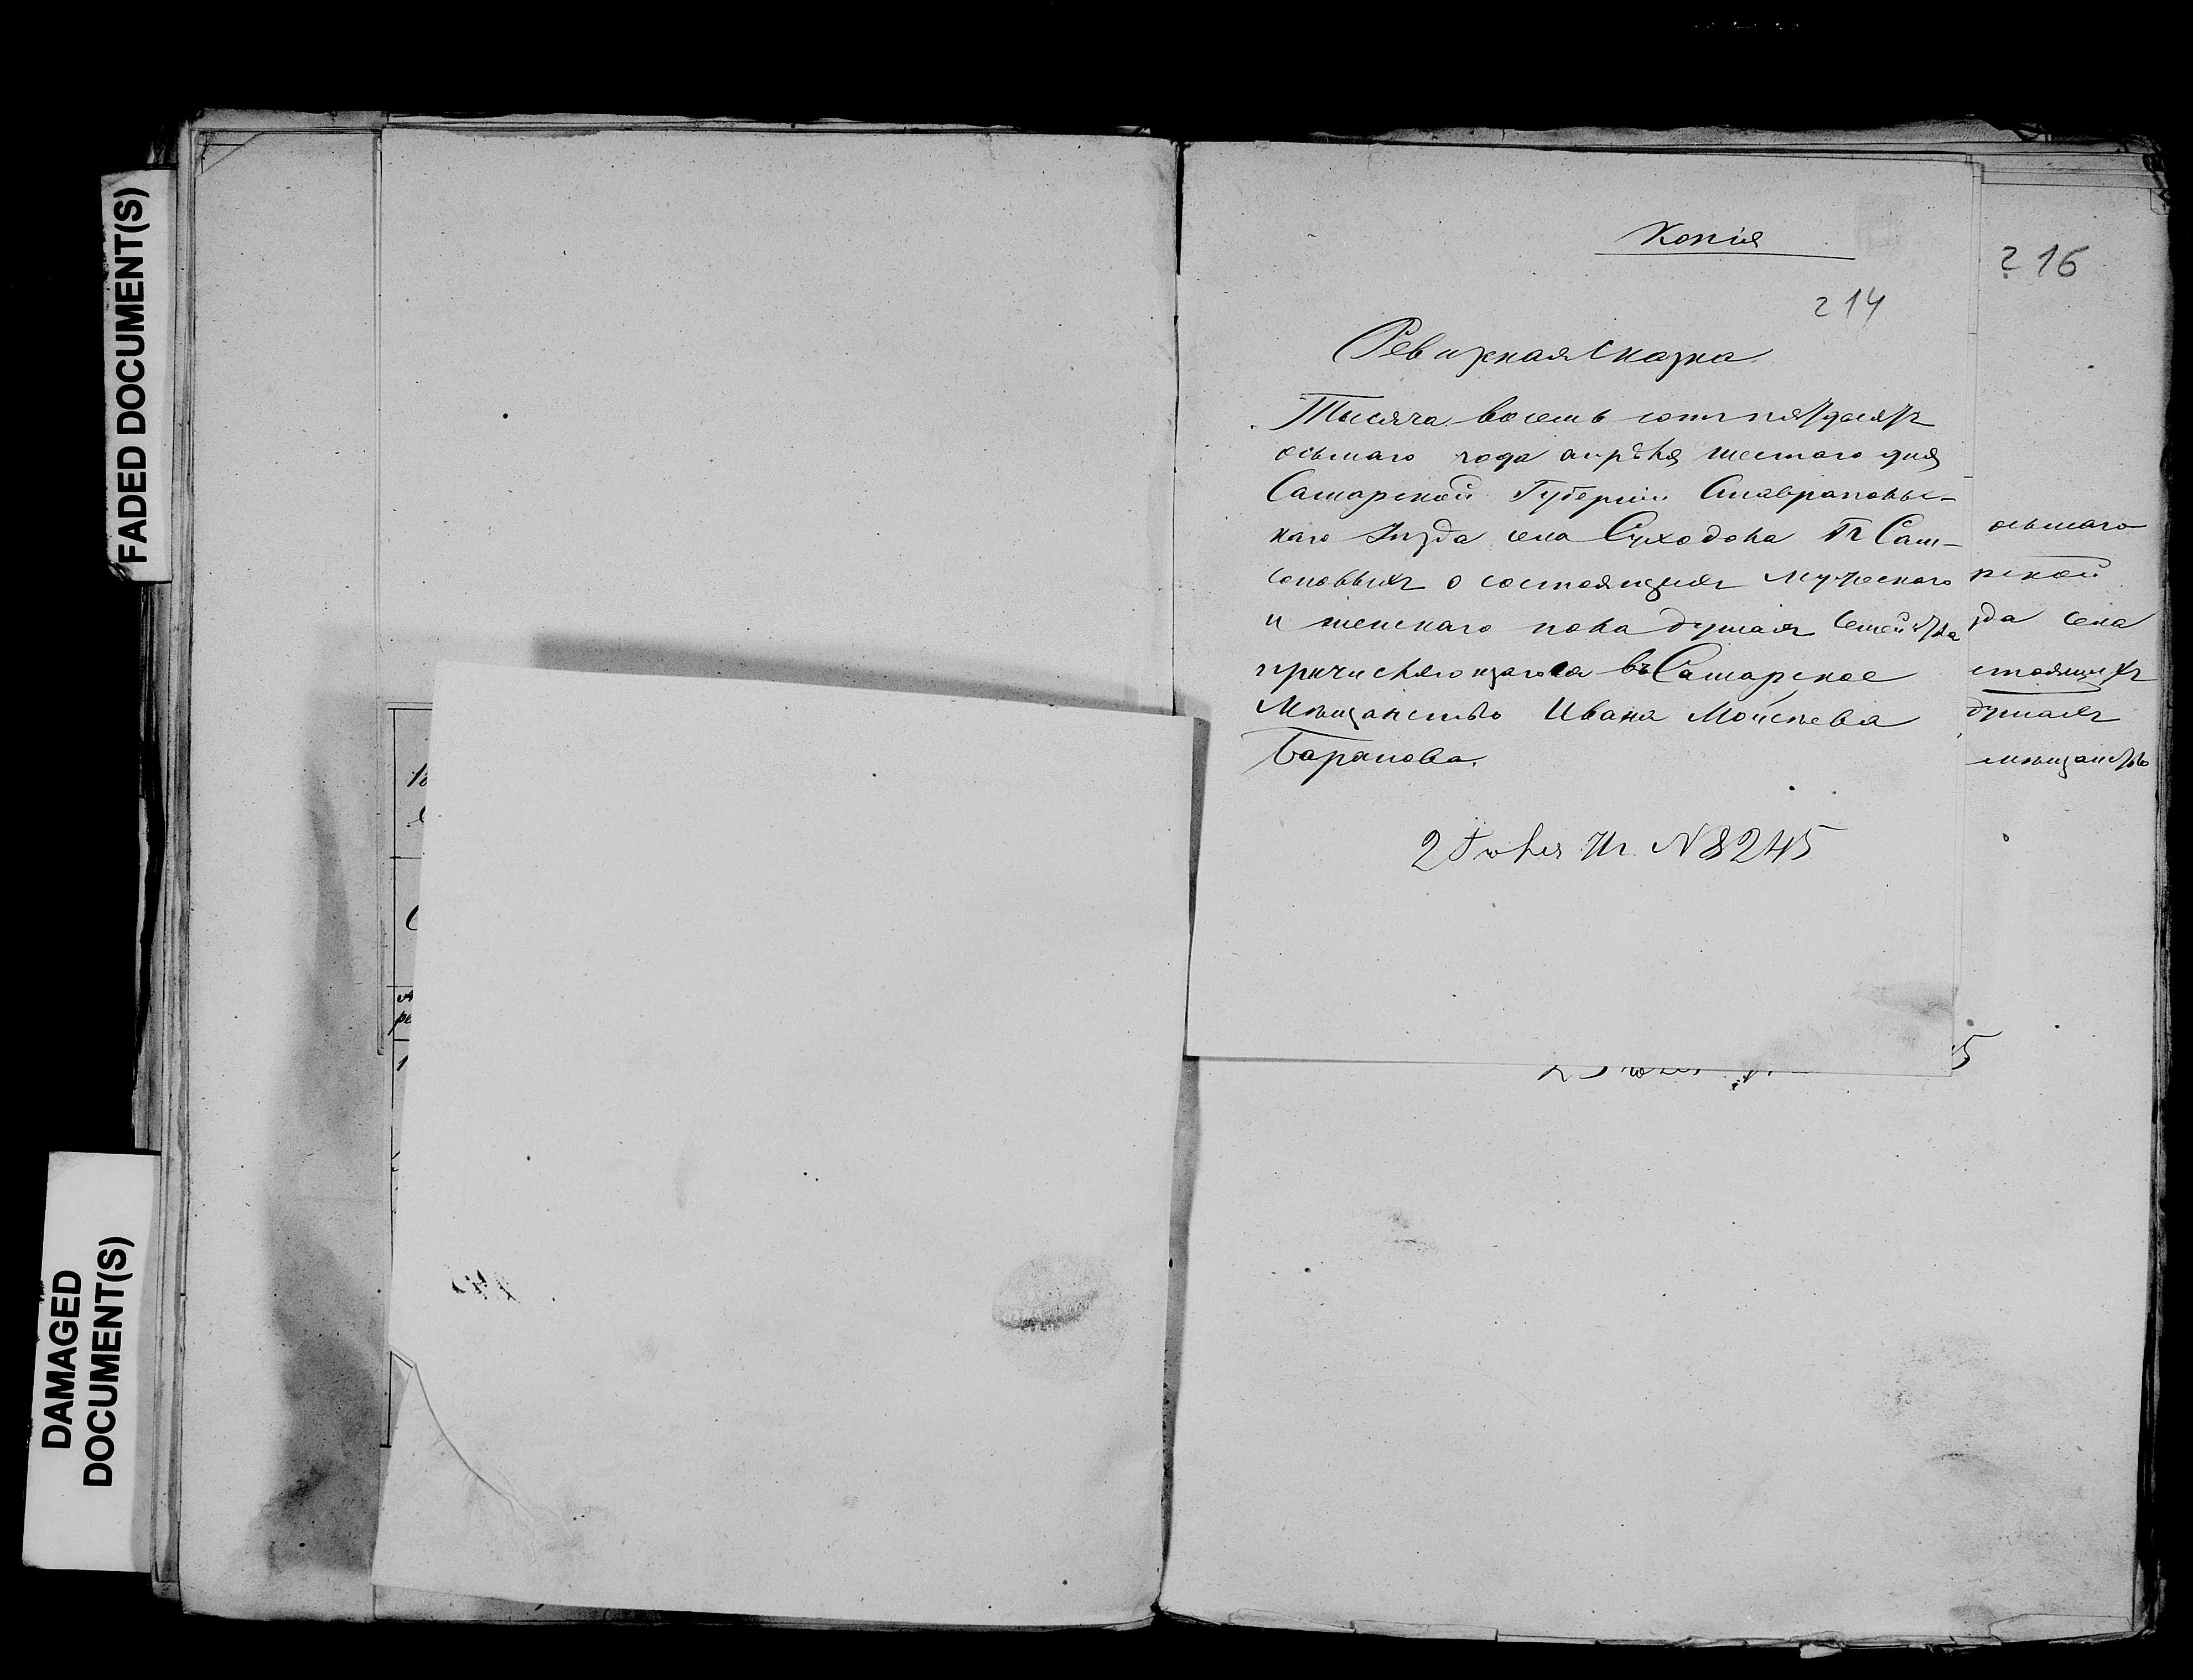 FADED DOCUMENT(S)
DAMAGED
DOCUMENT(S)
Копія
214
Ревизская Сказка
Тысяча восемь сотъ пятьдесятъ
осьмаго года апрѣля шестаго дня
Самарской Губерніи Ставрапольс-
каго Уѣзда села Суходола Гг Сам-
соновыхъ о состоящихъ мужескаго
и женскаго пола душахъ Семейства
причисляющагося въ Самарское
Мѣщанство Ивана Мойсѣева
Баранова.
2 Іюля № 8245
216
осьмаго
рской
зда села
стоящихъ
душахъ
мѣщанство
5